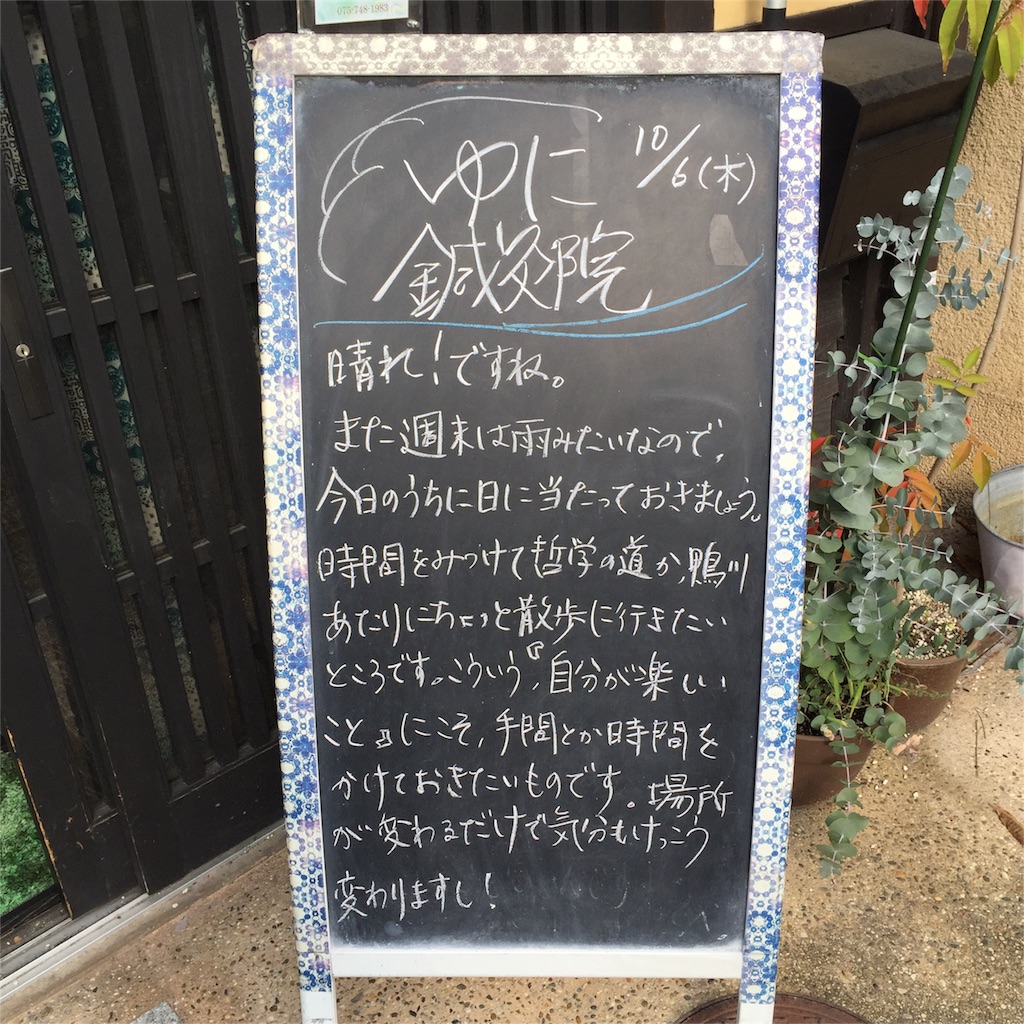 075-748-1983
ゆに
10/6(木)
鍼灸院
晴れ!ですね。
また週末は雨みたいなので、
今日のうちに日に当たっておきましょう。
時間をみつけて哲学の道か、鴨川
あたりにちょっと散歩に行きたい
ところです。こういう、『自分が楽しい
こと』にこそ、手間とか時間を
かけておきたいものです。場所
が変わるだけで気分もけっこう
変わりますし!